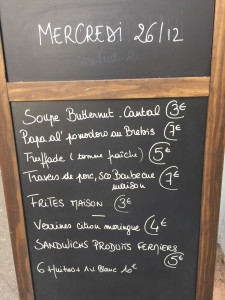 MERCREDI 26/12
Soupe Butternut. Cantal 3€
Papa al' pomodoro au Brebis 7€
Truffade (tomme fraîche) 5€
Travers de porc, sce Barbecue
maison 7€
FRITES MAISON 3€
Verrines citron meringue 4€
SANDWICHS PRODUITS FERMIERS
5€
6 Huîtres + 1 v. Blanc 10€